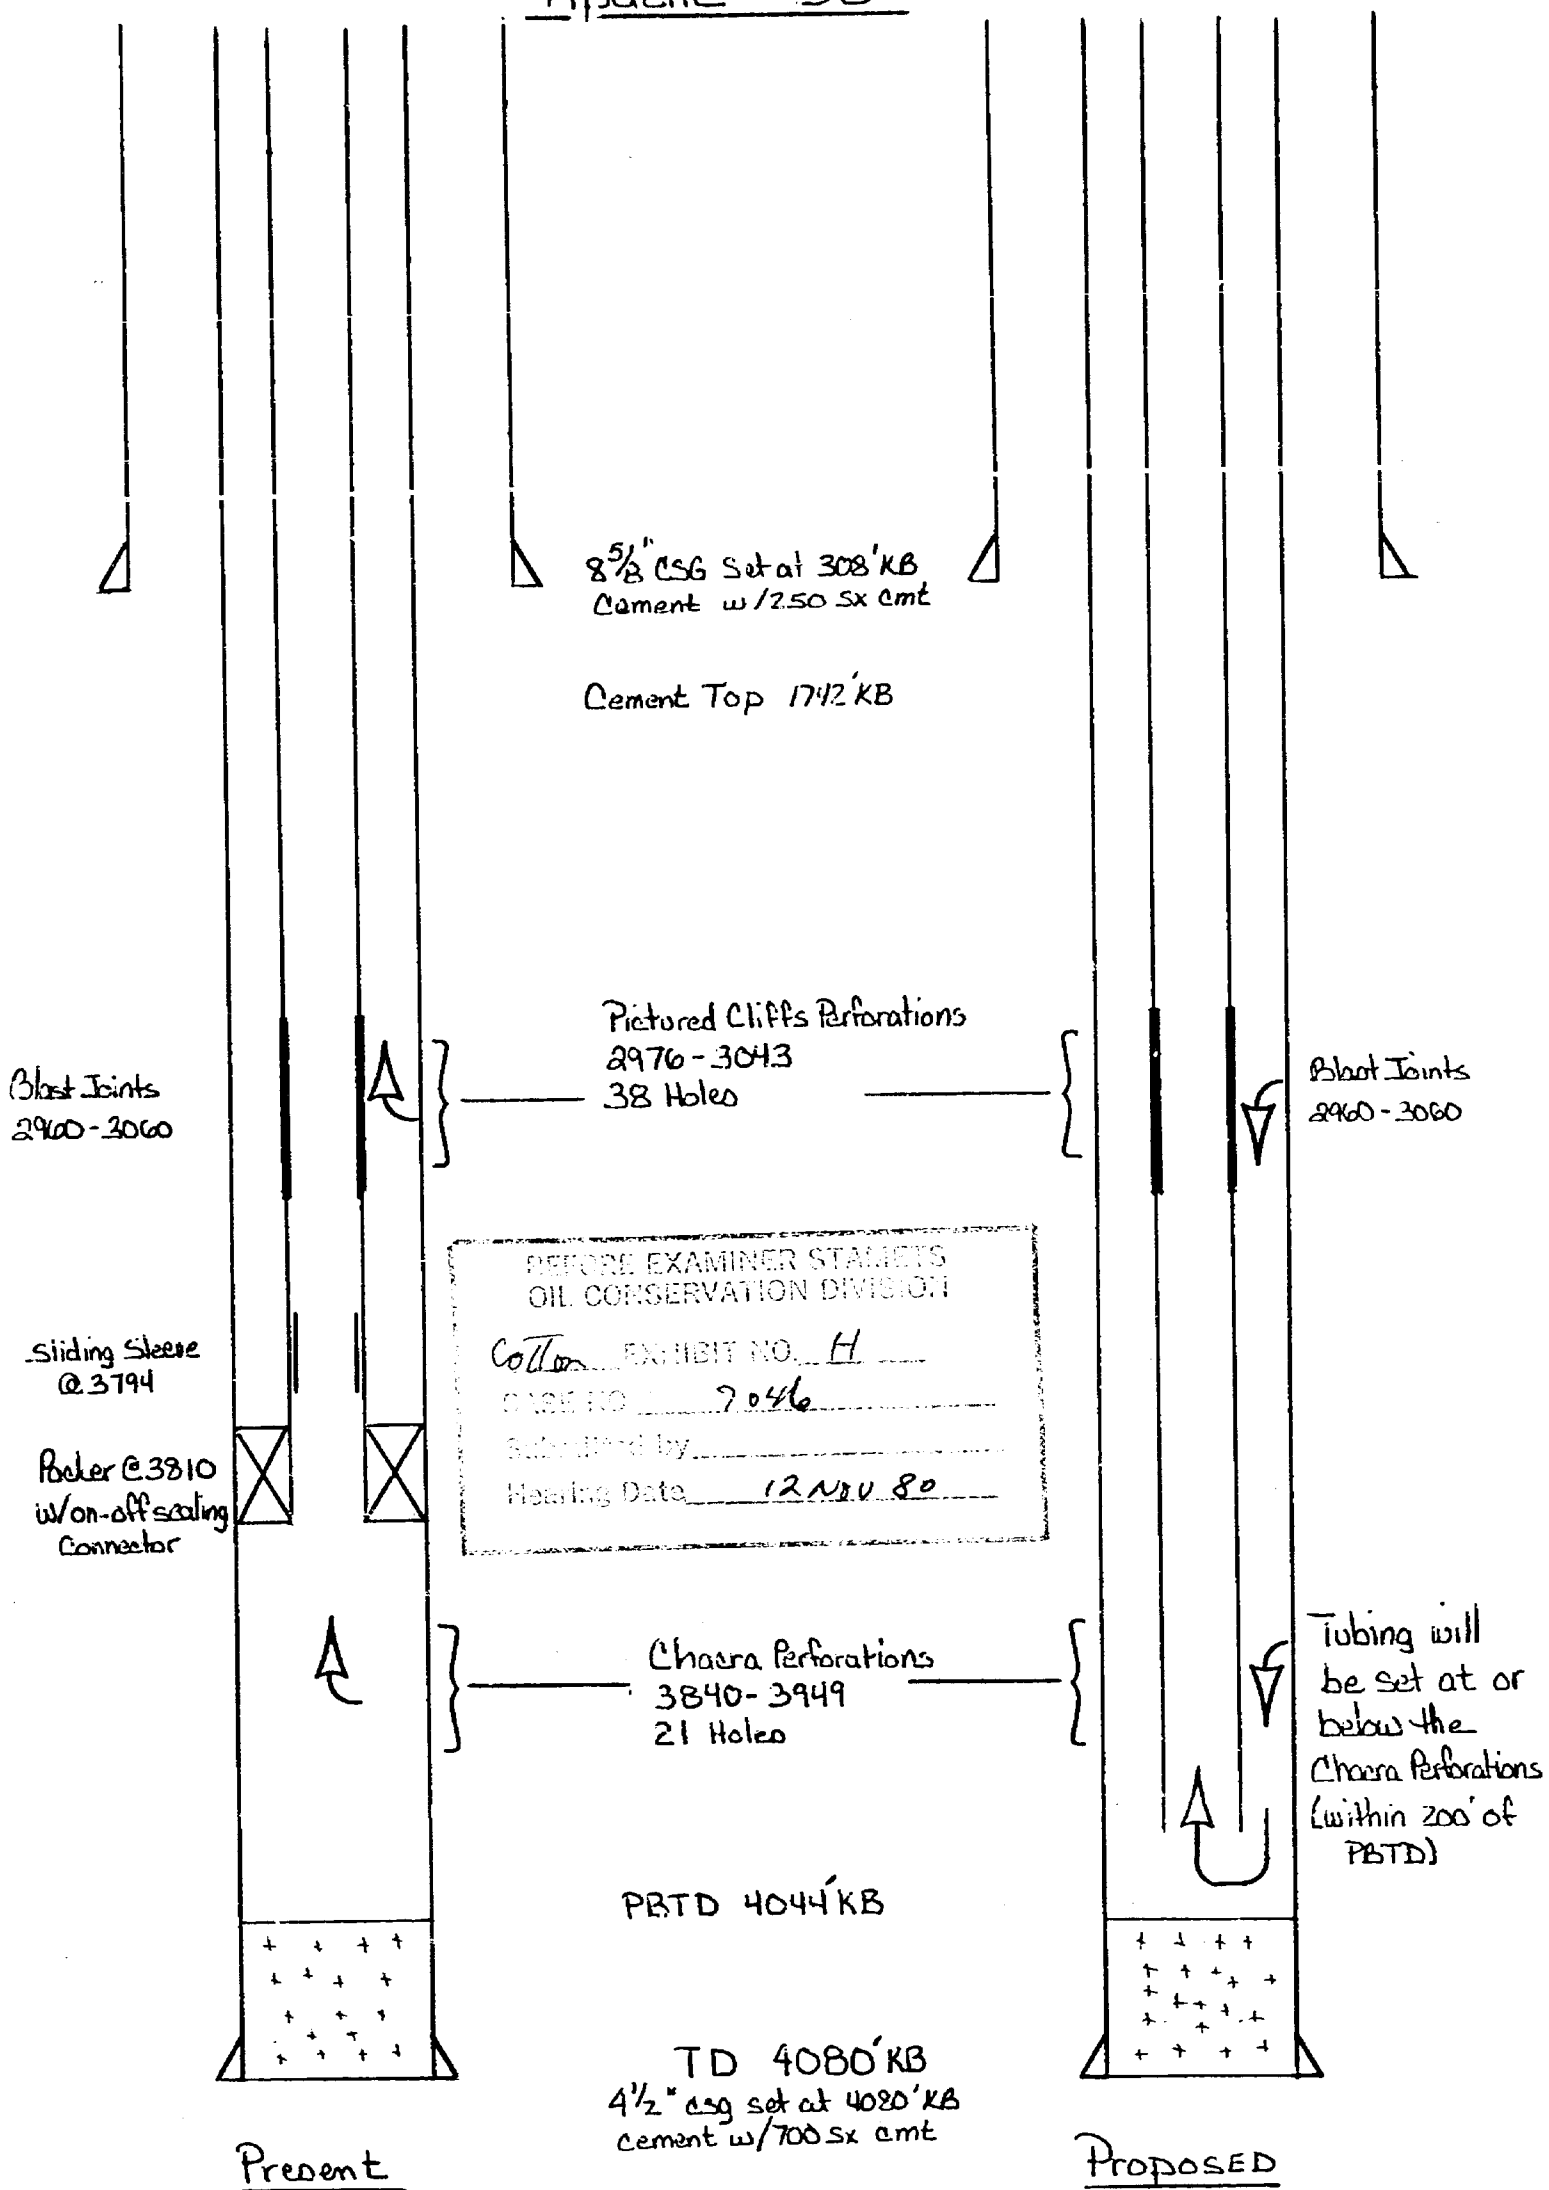 8 5/8" CSG Set at 308' KB
Cement w/250 sx cmt
Cement Top 1742' KB
Pictured Cliffs Perforations
2976-3043
38 Holes
Blast Joints
2960-3060
Blast Joints
2960-3060
BEFORE EXAMINER STAMETS
OIL CONSERVATION DIVISION
Cotton EXHIBIT NO. H
CASE NO. 7046
Submitted by
Hearing Date 12 NOV 80
Sliding Sleeve
@ 3794
Packer @ 3810
w/on-off sealing
Connector
Chacra Perforations
3840-3949
21 Holes
Tubing will
be set at or
below the
Chacra Perforations
(within 200' of
PBTD)
PBTD 4044' KB
TD 4080' KB
4 1/2" csg set at 4080' KB
cement w/700 sx cmt
Present
Proposed